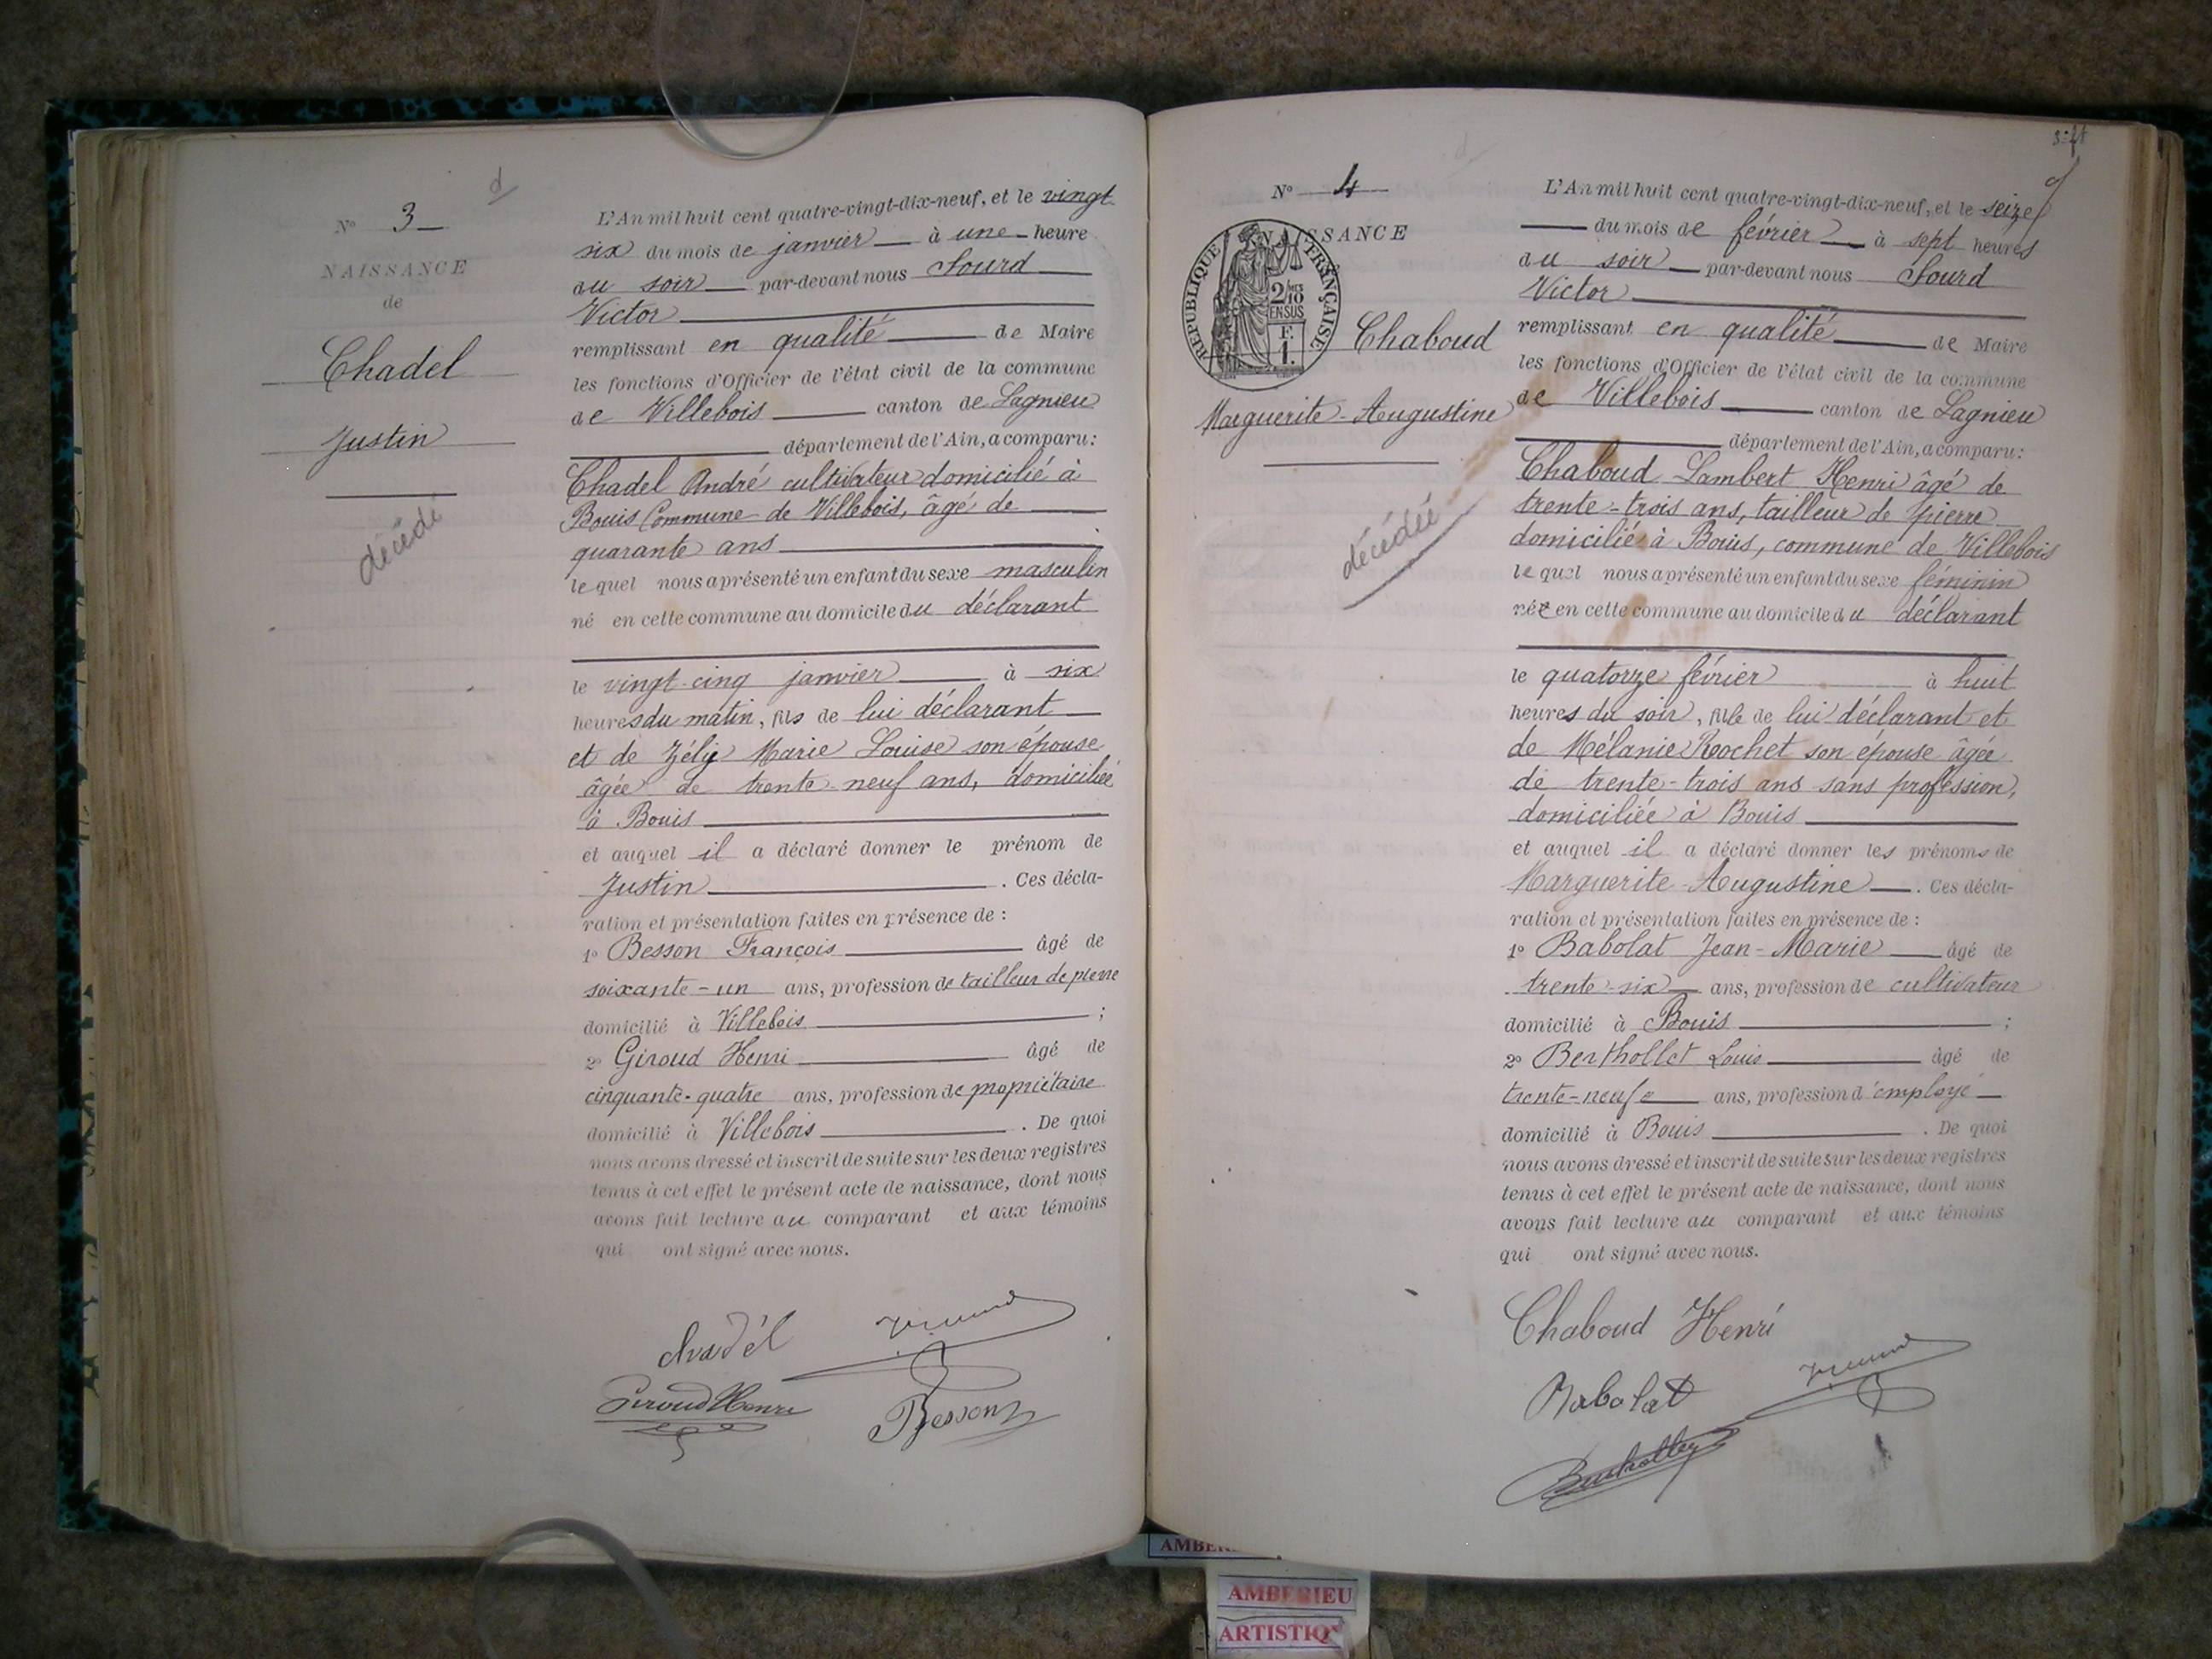 d
N° 3
NAISSANCE
de
Chadel
Justin
décédé
L'An mil huit cent quatre-vingt-dix-neuf, et le vingt
six du mois de janvier à une heure
du soir par-devant nous Sourd
Victor
remplissant en qualité de Maire
les fonctions d'Officier de l'état civil de la commune
de Villebois canton de Lagnieu
département de l'Ain, a comparu:
Chadel André cultivateur domicilié à
Bouis Commune de Villebois, âgé de
quarante ans
le quel nous a présenté un enfant du sexe masculin
né en cette commune au domicile du déclarant
le vingt-cinq janvier à six
heures du matin, fils de lui déclarant
et de Marie Louise son épouse
âgée de trente neuf ans, domiciliée
à Bouis
et auquel il a déclaré donner le prénom de
Justin . Ces décla-
ration et présentation faites en présence de :
1° Besson François âgé de
soixante-un ans, profession de tailleur de pierre
domicilié à Villebois ;
2° Giroud Henri âgé de
cinquante-quatre ans, profession de propriétaire
domicilié à Villebois . De quoi
nous avons dressé et inscrit de suite sur les deux registres
tenus à cet effet le présent acte de naissance, dont nous
avons fait lecture au comparant et aux témoins
qui ont signé avec nous.
chadél
Giroud Henri
Besson
N° 4
NAISSANCE
REPUBLIQUE FRANÇAISE
2/10 EN SUS
F.
1.
Chaboud
Marguerite-Augustine
décédée
L'An mil huit cent quatre-vingt-dix-neuf, et le seize
du mois de février à sept heures
du soir par-devant nous Sourd
Victor
remplissant en qualité de Maire
les fonctions d'Officier de l'état civil de la commune
de Villebois canton de Lagnieu
département de l'Ain, a comparu:
Chaboud Lambert Henri âgé de
trente-trois ans, tailleur de pierre
domicilié à Bouis, commune de Villebois
le quel nous a présenté un enfant du sexe féminin
née en cette commune au domicile du déclarant
le quatorze février à huit
heures du soir, fille de lui déclarant et
de Mélanie Rochet son épouse âgée
de trente-trois ans sans profession,
domiciliée à Bouis
et auquel il a déclaré donner les prénoms de
Marguerite-Augustine . Ces décla-
ration et présentation faites en présence de :
1° Babolat Jean-Marie âgé de
trente-six ans, profession de cultivateur
domicilié à Bouis ;
2° Berthollet Louis âgé de
trente-neuf ans, profession d'employé
domicilié à Bouis . De quoi
nous avons dressé et inscrit de suite sur les deux registres
tenus à cet effet le présent acte de naissance, dont nous
avons fait lecture au comparant et aux témoins
qui ont signé avec nous.
Chaboud Henri
Babolat
AMBERIEU
ARTISTIQ